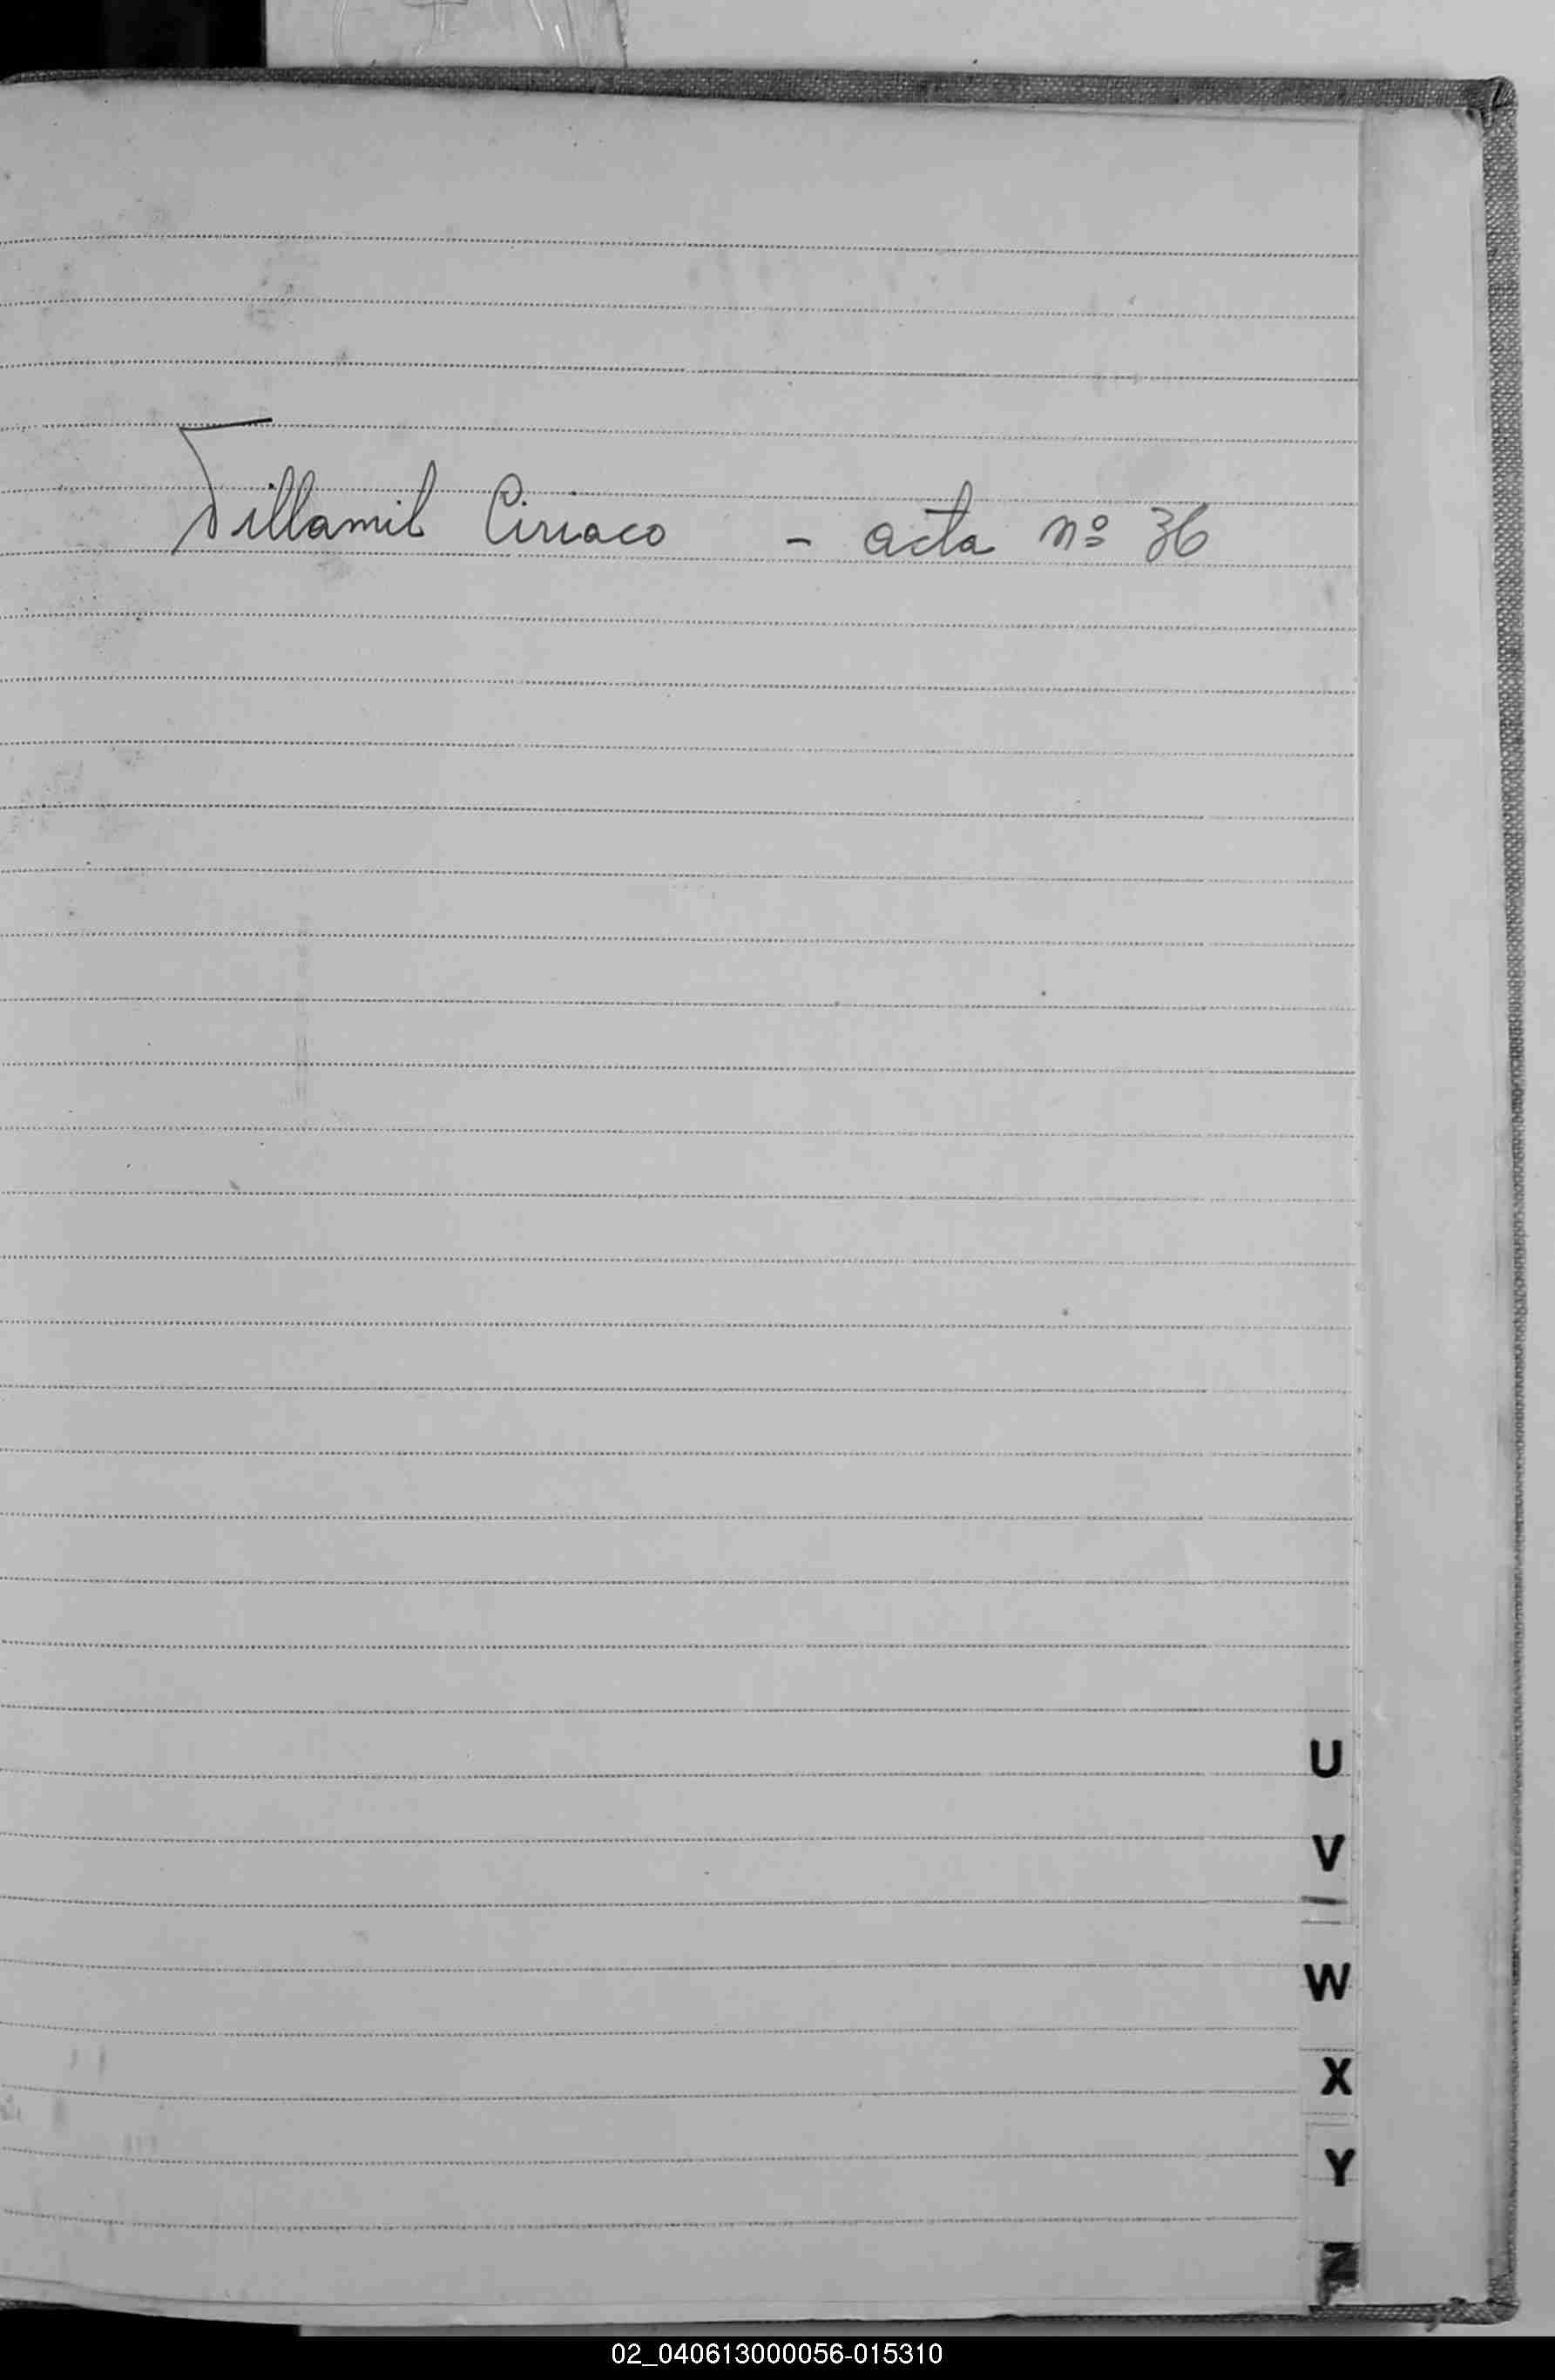 Villamil Ciriaco - acta nº 36
U
V
W
X
Y
Z
02_040613000056-015310